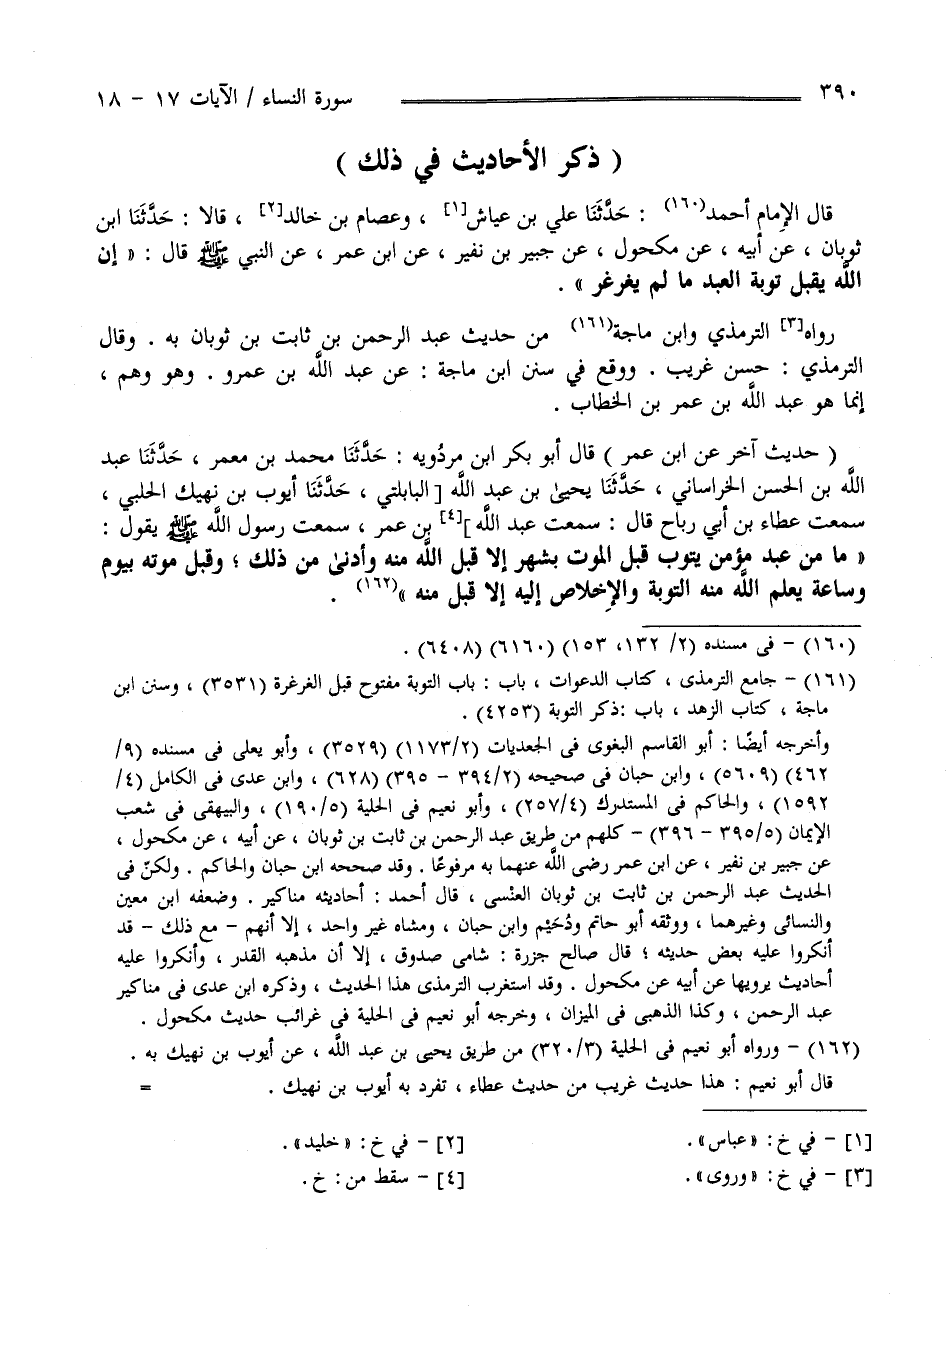 ٣٩٠ سورة النساء / الآيات ١٧ - ١٨
( ذكر الأحاديث في ذلك )
قال الإمام أحمد(١٦٠) : حَدَّثَنَا علي بن عياش[١] ، وعصام بن خالد[٢] ، قالا : حَدَّثَنَا ابن
ثوبان ، عن أبيه ، عن مكحول ، عن جبير بن نفير ، عن ابن عمر ، عن النبي ﷺ قال : « إن
اللَّه يقبل توبة العبد ما لم يغرغر » .
رواه[٣] الترمذي وابن ماجة(١٦١) من حديث عبد الرحمن بن ثابت بن ثوبان به . وقال
الترمذي : حسن غريب . ووقع في سنن ابن ماجة : عن عبد اللَّه بن عمرو . وهو وهم ،
إنما هو عبد اللَّه بن عمر بن الخطاب .
( حديث آخر عن ابن عمر ) قال أبو بكر ابن مردُويه : حَدَّثَنَا محمد بن معمر ، حَدَّثَنَا عبد
اللَّه بن الحسن الخراساني ، حَدَّثَنَا يحيىٰ بن عبد اللَّه [ البابلتي ، حَدَّثَنَا أيوب بن نهيك الحلبي ،
سمعت عطاء بن أبي رباح قال : سمعت عبد اللَّه ][٤] بن عمر ، سمعت رسول اللَّه ﷺ يقول :
« ما من عبد مؤمن يتوب قبل الموت بشهر إلا قبل اللَّه منه وأدنىٰ من ذلك ؛ وقبل موته بيوم
وساعة يعلم اللَّه منه التوبة والإخلاص إليه إلا قبل منه »(١٦٢) .
(١٦٠) - فى مسنده (٢/ ١٣٢، ١٥٣) (٦١٦٠) (٦٤٠٨) .
(١٦١) - جامع الترمذى ، كتاب الدعوات ، باب : باب التوبة مفتوح قبل الغرغرة (٣٥٣١) ، وسنن ابن
ماجة ، كتاب الزهد ، باب :ذكر التوبة (٤٢٥٣) .
وأخرجه أيضًا : أبو القاسم البغوى فى الجعديات (١١٧٣/٢) (٣٥٢٩) ، وأبو يعلى فى مسنده (٩/
٤٦٢) (٥٦٠٩) ، وابن حبان فى صحيحه (٣٩٤/٢ - ٣٩٥) (٦٢٨) ، وابن عدى فى الكامل (٤/
١٥٩٢) ، والحاكم فى المستدرك (٢٥٧/٤) ، وأبو نعيم فى الحلية (١٩٠/٥) ، والبيهقى فى شعب
الإيمان (٣٩٥/٥ - ٣٩٦) - كلهم من طريق عبد الرحمن بن ثابت بن ثوبان ، عن أبيه ، عن مكحول ،
عن جبير بن نفير ، عن ابن عمر رضى اللَّه عنهما به مرفوعًا . وقد صححه ابن حبان والحاكم . ولكنّ فى
الحديث عبد الرحمن بن ثابت بن ثوبان العنْسى ، قال أحمد : أحاديثه مناكير . وضعفه ابن معين
والنسائى وغيرهما ، ووثقه أبو حاتم ودُحَيْم وابن حبان ، ومشاه غير واحد ، إلا أنهم - مع ذلك - قد
أنكروا عليه بعض حديثه ؛ قال صالح جزرة : شامى صدوق ، إلا أن مذهبه القدر ، وأنكروا عليه
أحاديث يرويها عن أبيه عن مكحول . وقد استغرب الترمذى هذا الحديث ، وذكره ابن عدى فى مناكير
عبد الرحمن ، وكذا الذهبى فى الميزان ، وخرجه أبو نعيم فى الحلية فى غرائب حديث مكحول .
(١٦٢) - ورواه أبو نعيم فى الحلية (٣٢٠/٣) من طريق يحيى بن عبد اللَّه ، عن أيوب بن نهيك به .
قال أبو نعيم : هذا حديث غريب من حديث عطاء ، تفرد به أيوب بن نهيك . =
[١] - في خ: «عباس». [٢] - في خ: «خليد».
[٣] - في خ: «وروى». [٤] - سقط من: خ.